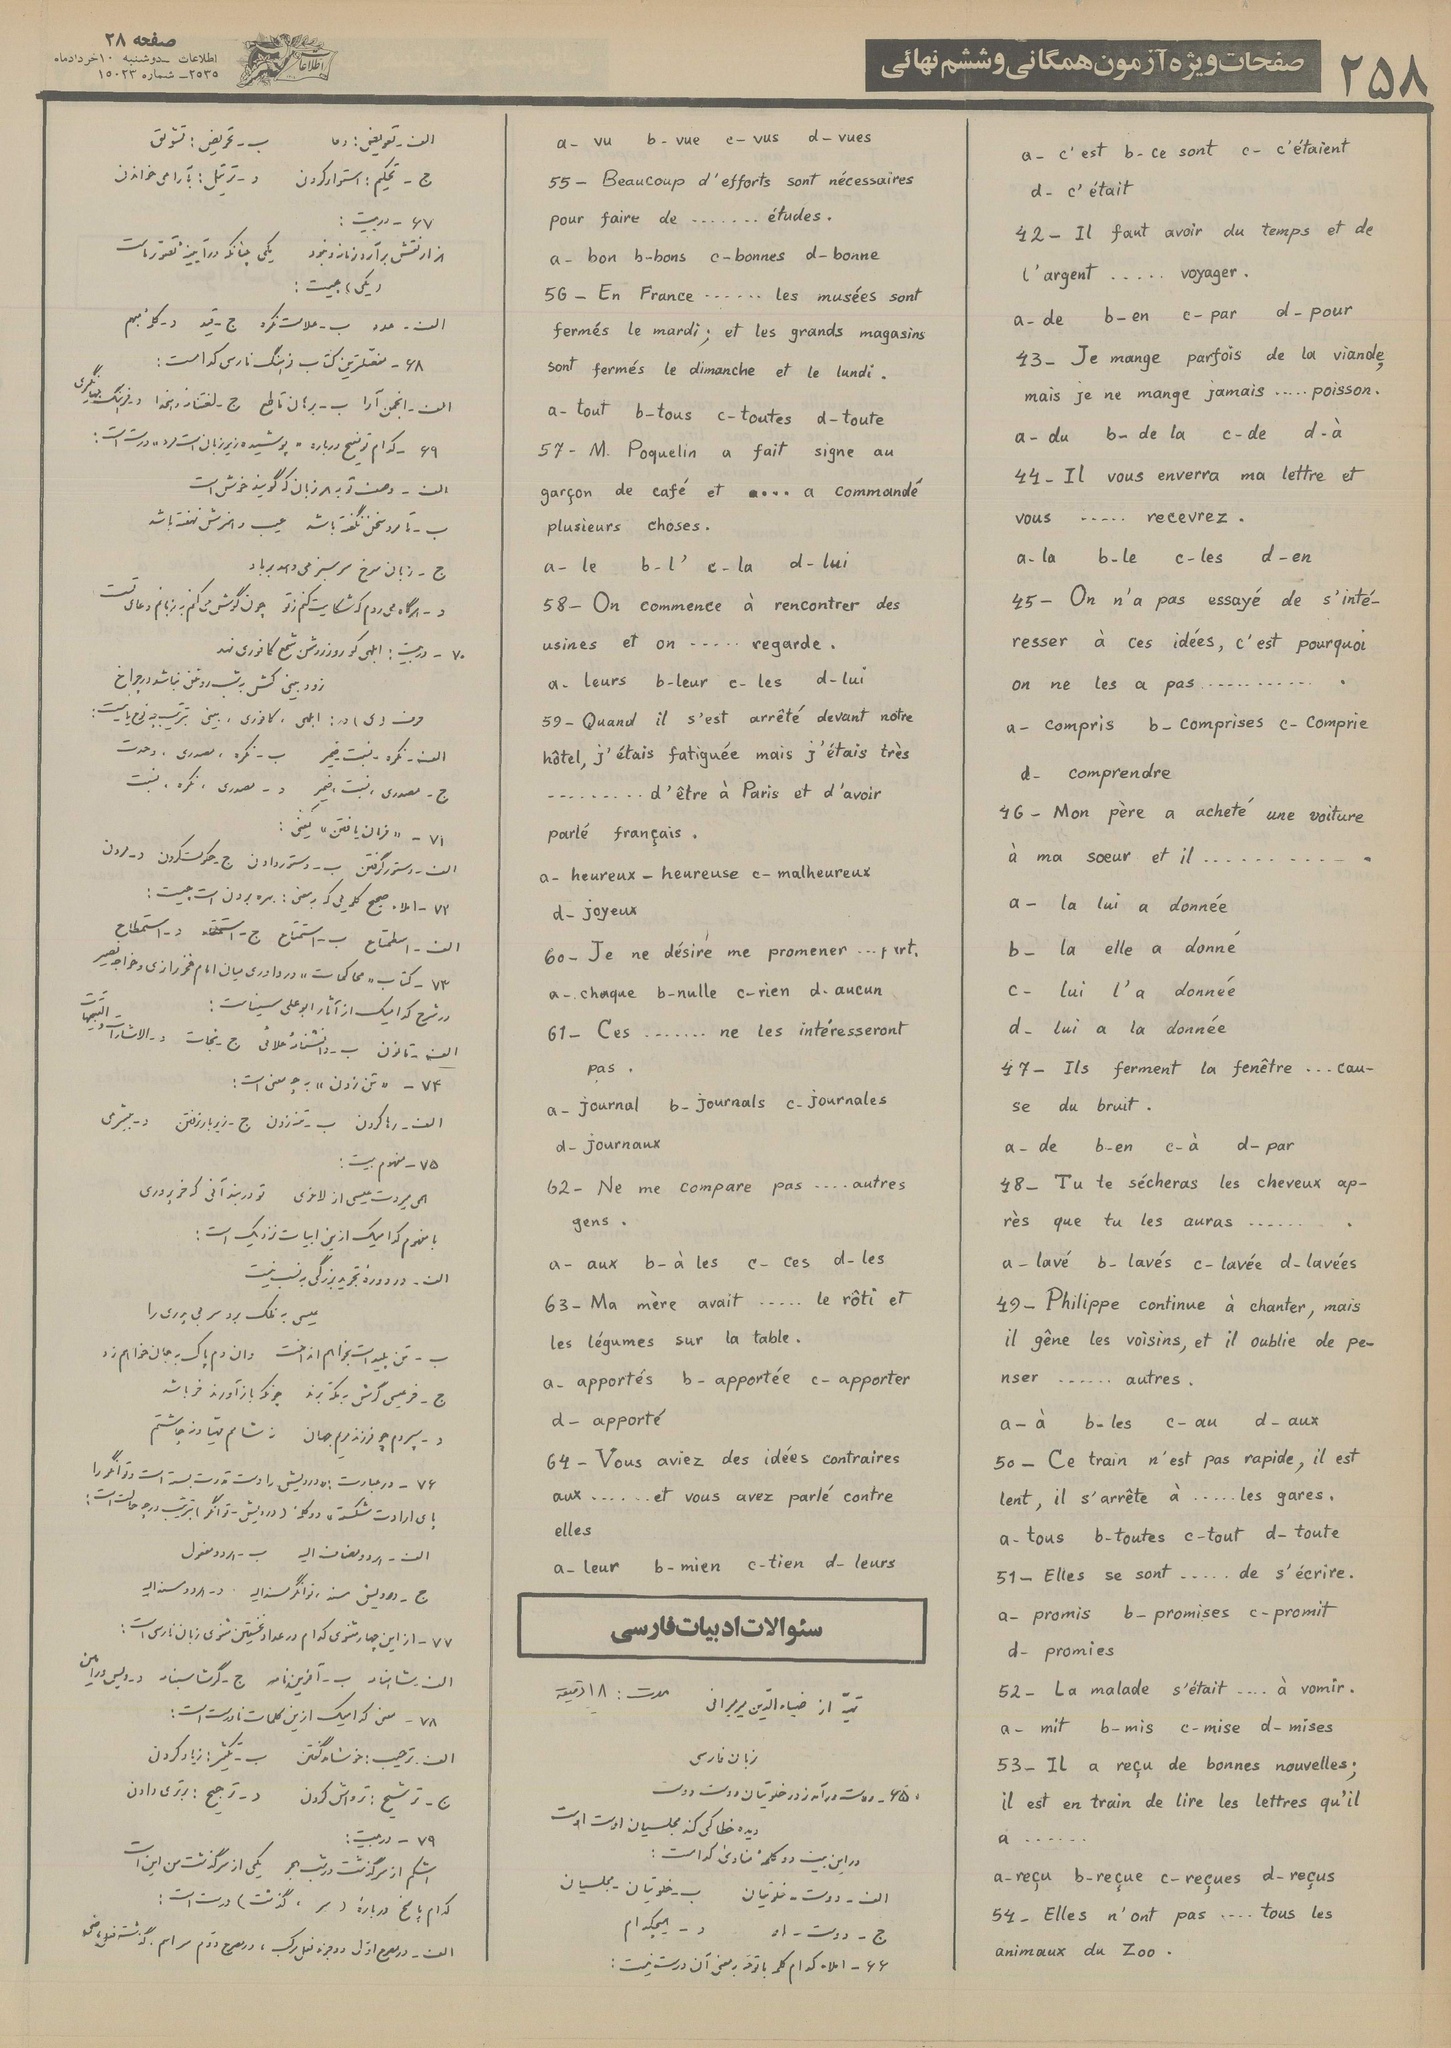 ۲۵۸
صفحات ویژه آزمون همگانی وششم نهائی
صفحه ۲۸
اطلاعات ـ دوشنبه ۱۰خردادماه
۲۵۳۵ـ شماره ۱۵۰۲۳
a- c'est b- ce sont c- c'étaient
d- c'était
42- Il faut avoir du temps et de
l'argent ..... voyager.
a- de b- en c- par d- pour
43- Je mange parfois de la viande,
mais je ne mange jamais ..... poisson.
a- du b- de la c- de d- à
44- Il vous enverra ma lettre et
vous ..... recevrez.
a- la b- le c- les d- en
45- On n'a pas essayé de s'inté-
resser à ces idées, c'est pourquoi
on ne les a pas ............ .
a- compris b- comprises c- comprie
d- comprendre
46- Mon père a acheté une voiture
à ma sœur et il ............ .
a- la lui a donnée
b- la elle a donné
c- lui l'a donnée
d- lui a la donnée
47- Ils ferment la fenêtre ... cau-
se du bruit.
a- de b- en c- à d- par
48- Tu te sécheras les cheveux ap-
rès que tu les auras ....... .
a- lavé b- lavés c- lavée d- lavées
49- Philippe continue à chanter, mais
il gêne les voisins, et il oublie de pe-
nser ...... autres.
a- à b- les c- au d- aux
50- Ce train n'est pas rapide, il est
lent, il s'arrête à ..... les gares.
a- tous b- toutes c- tout d- toute
51- Elles se sont ..... de s'écrire.
a- promis b- promises c- promit
d- promies
52- La malade s'était .... à vomir.
a- mit b- mis c- mise d- mises
53- Il a reçu de bonnes nouvelles;
il est en train de lire les lettres qu'il
a ......
a- reçu b- reçue c- reçues d- reçus
54- Elles n'ont pas .... tous les
animaux du Zoo.
a- vu b- vue c- vus d- vues
55- Beaucoup d'efforts sont nécessaires
pour faire de ....... études.
a- bon b- bons c- bonnes d- bonne
56- En France ...... les musées sont
fermés le mardi; et les grands magasins
sont fermés le dimanche et le lundi.
a- tout b- tous c- toutes d- toute
57- M. Poquelin a fait signe au
garçon de café et .... a commandé
plusieurs choses.
a- le b- l' c- la d- lui
58- On commence à rencontrer des
usines et on ..... regarde.
a- leurs b- leur c- les d- lui
59- Quand il s'est arrêté devant notre
hôtel, j'étais fatiguée mais j'étais très
......... d'être à Paris et d'avoir
parlé français.
a- heureux - heureuse c- malheureux
d- joyeux
60- Je ne désire me promener ...
a- chaque b- nulle c- rien d- aucun
61- Ces ....... ne les intéresseront
pas.
a- journal b- journals c- journales
d- journaux
62- Ne me compare pas .... autres
gens.
a- aux b- à les c- ces d- les
63- Ma mère avait ..... le rôti et
les légumes sur la table.
a- apportés b- apportée c- apporter
d- apporté
64- Vous aviez des idées contraires
aux ....... et vous avez parlé contre
elles
a- leur b- mien c- tien d- leurs
سئوالات ادبیات فارسی
مدت : ۱۸ دقیقه
زبان فارسی
۶۵ـ دوست در آمد ز در خلوتیان دوست دوست
دیده خطا می کند مجلسیان اوست اوست
در این بیت دو کلمهٔ منادیٰ کدامست :
الف ـ دوست ـ خلوتیان ب ـ خلوتیان ـ مجلسیان
ج ـ دوست ـ او د ـ هیچکدام
۶۶ ـ املاء کدام کلمه با توجه بمعنی آن درست نیست :
ب ـ تحریض : تشویق
ج ـ تحکیم : استوار کردن د ـ ترتیل : بآرامی خواندن
۶۷ ـ در بیت :
هزار نقش برآرد زمانه و نبود یکی چنانکه در آیینهٔ تصور ماست
(یکی) چیست :
الف ـ عدد ب ـ علامت نکره ج ـ قید د ـ کلمه مبهم
۶۸ـ مفصلترین کتاب فرهنگ فارسی کدامست :
الف ـ انجمن آرا ب ـ برهان قاطع ج ـ لغتنامه دهخدا د ـ فرهنگ جهانگیری
۶۹ ـ کدام توضیح درباره «پوشیده زیر زبان است مرد» درست است :
الف ـ وصف تو به هر زبان که گویند خوش است
ب ـ تا مرد سخن نگفته باشد عیب و هنرش نهفته باشد
ج ـ زبان سرخ سر سبز می دهد بر باد
۷۰ ـ در بیت : ابلهی کو روز روشن شمع کافوری نهد
زود بینی کش به شب روغن نباشد در چراغ
حرف (ی) در : ابلهی ، کافوری ، بینی بترتیب چه نوع یایی است :
الف ـ نکره ـ نسبت ـ ضمیر ب ـ نکره ، مصدری ، وحدت
ج ـ مصدری ، نسبت ، ضمیر د ـ مصدری ، نکره ، نسبت
۷۱ ـ «فرمان یافتن» یعنی :
الف ـ دستور گرفتن ب ـ دستور دادن ج ـ حکومت کردن د ـ مردن
۷۲ ـ املاء صحیح کلمه یی که بمعنی : بهره بردن است چیست :
۷۳ ـ کتاب «محاکمات» در داوری میان امام فخر رازی و خواجه نصیر
در شرح کدامیک از آثار ابوعلی سیناست :
الف ـ قانون ب ـ دانشنامهٔ علائی ج ـ نجات د ـ الاشارات و التنبیهات
۷۴ ـ «تن زدن» به چه معنی است :
الف ـ رها کردن ب ـ تنه زدن ج ـ زیر بار نرفتن د ـ بیشرمی
۷۵ ـ مفهوم بیت :
همی میردت عیسی از لاغری تو در بند آنی که خر پروری
با مفهوم کدامیک از این ابیات نزدیک است :
الف ـ در دورهٔ تجرید بزرگی به نسب نیست
عیسی به فلک برد سر بی پدری را
ج ـ خر عیسی گرش به مکه برند چونکه باز آورند خر باشد
۷۶ ـ در عبارت : «درویش را دست قدرت بسته است و توانگر را
پای ارادت شکسته» دو کلمه (درویش ـ توانگر) بترتیب در چه حالت است :
الف ـ هر دو مضاف الیه ب ـ هر دو مفعول
ج ـ درویش مسند ، توانگر مسندالیه د ـ هر دو مسندالیه
۷۷ ـ از این چهار مثنوی کدام در عداد نخستین مثنوی زبان فارسی است :
الف ـ شاهنامه ب ـ آفرین نامه ج ـ گرشاسبنامه د ـ ویس و رامین
۷۸ ـ معنی کدامیک از این کلمات نادرست است :
الف ـ ترحیب : خوشامد گفتن ب ـ تکثیر : زیاد کردن
ج ـ ترشیح : تراوش کردن د ـ ترجیح : برتری دادن
۷۹ ـ در بیت :
اشکم از سر گذشت در شب هجر یکی از سرگذشت من این است
کدام پاسخ دربارهٔ (سر ، گذشت) درست است :